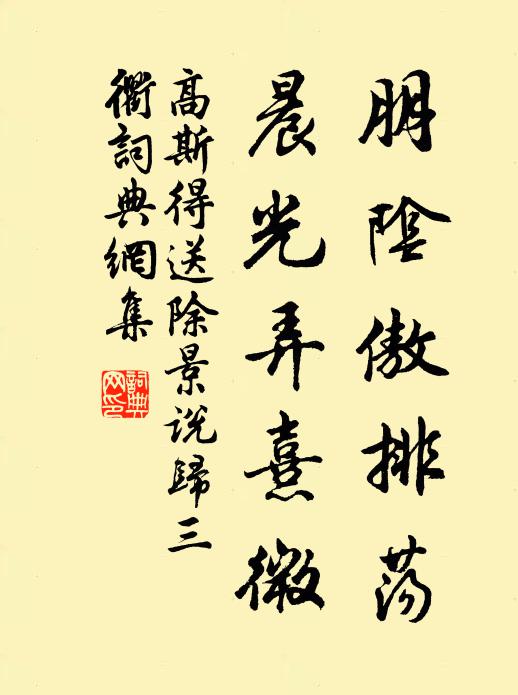 朋陰傲排蕩
晨光弄熹微
高斯得送除景说歸三
衢詞典網集
詞典網印